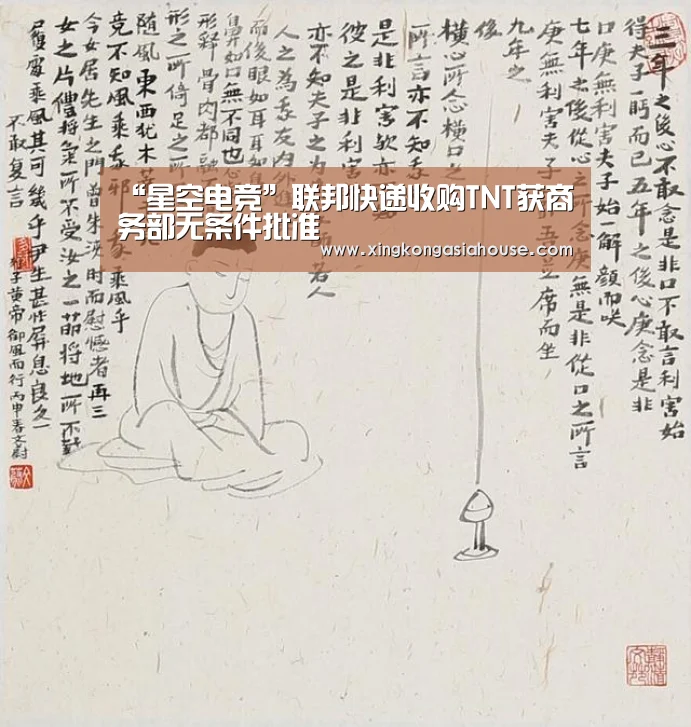 三年之後心不敢念是非口不敢言利害始
得夫子一眄而已五年之後心庚念是非
口庚無利害夫子始一解顏而咲
七年之後從心之所念庚無是非從口之所言
庚無利害夫子 引吾並席而坐
九年之
後
橫心所念橫口之
所言亦不知我
是非利害歟亦 知
彼之是非利害
亦不知夫子之為 若人
人之為我友內外進
而後眼如耳耳如鼻
鼻如口無不同也心
形釋骨肉都融
形之所倚足之所
隨風東西犹木葉
竟不知風乘我邪我乘風乎
今女居先生之門曾未浹时而慰憾者再三
女之片體將氣所不受汝之一節將地所不載
履虛乘風其可幾乎尹生甚怍屏息良久一
不敢复言
列子黄帝御風而行丙申春文尉
“星空电竞”联邦快递收购TNT获商
务部无条件批准
www.xingkongasiahouse.com